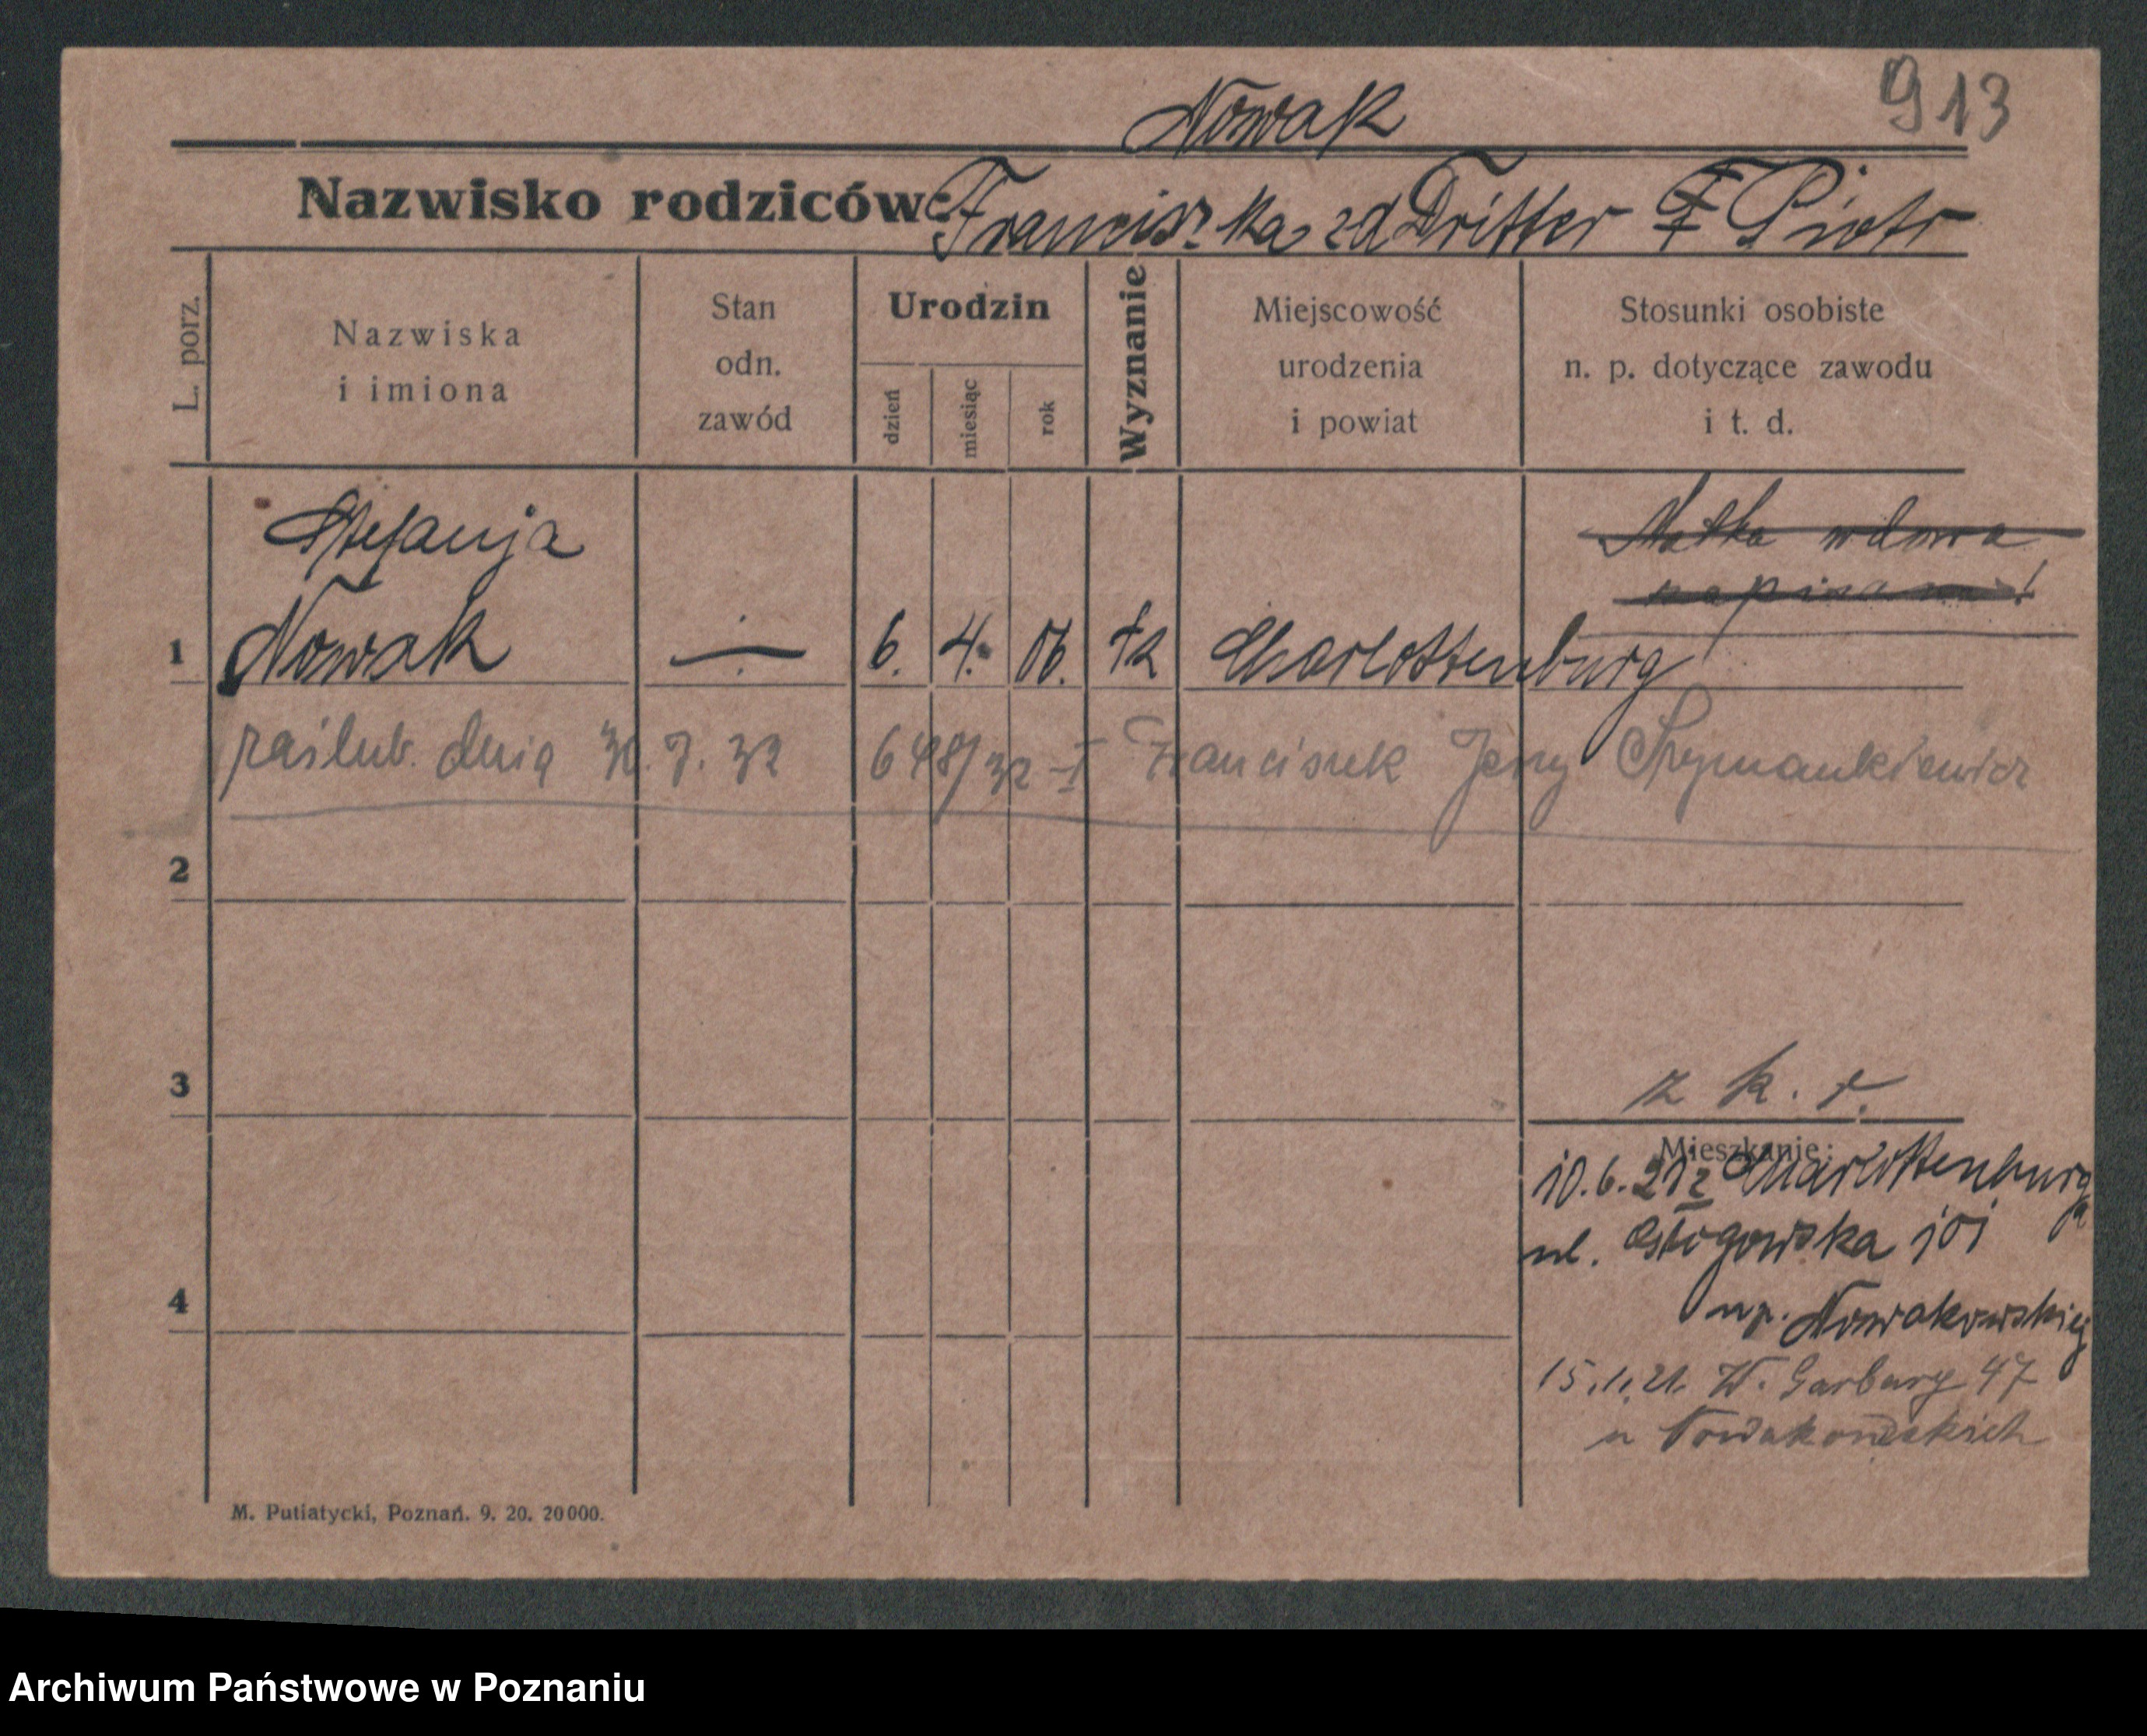 913
Nowak
Nazwisko rodziców: Franciszka zd Dritter Piotr
L. porz.
Nazwiska
i imiona
Stan
odn.
zawód
Urodzin
dzień
miesiąc
rok
Wyznanie
Miejscowość
urodzenia
i powiat
Stosunki osobiste
n. p. dotyczące zawodu
i t. d.
Matka wdowa
Stefanja
1 Nowak 6. 4. 06. rk Charlottenburg
zaślub. dnia 30.7.32 648/32 I Franciszek Jerzy Szymankiewicz
2
3
z k. r.
Mieszkanie:
10.6.21 z Charlottenburga
ul. 101
4
np. Nowakowskiej
15.11.21. W. Garbary 47
u Nowakowskich
M. Putiatycki, Poznań. 9. 20. 20000.
Archiwum Państwowe w Poznaniu